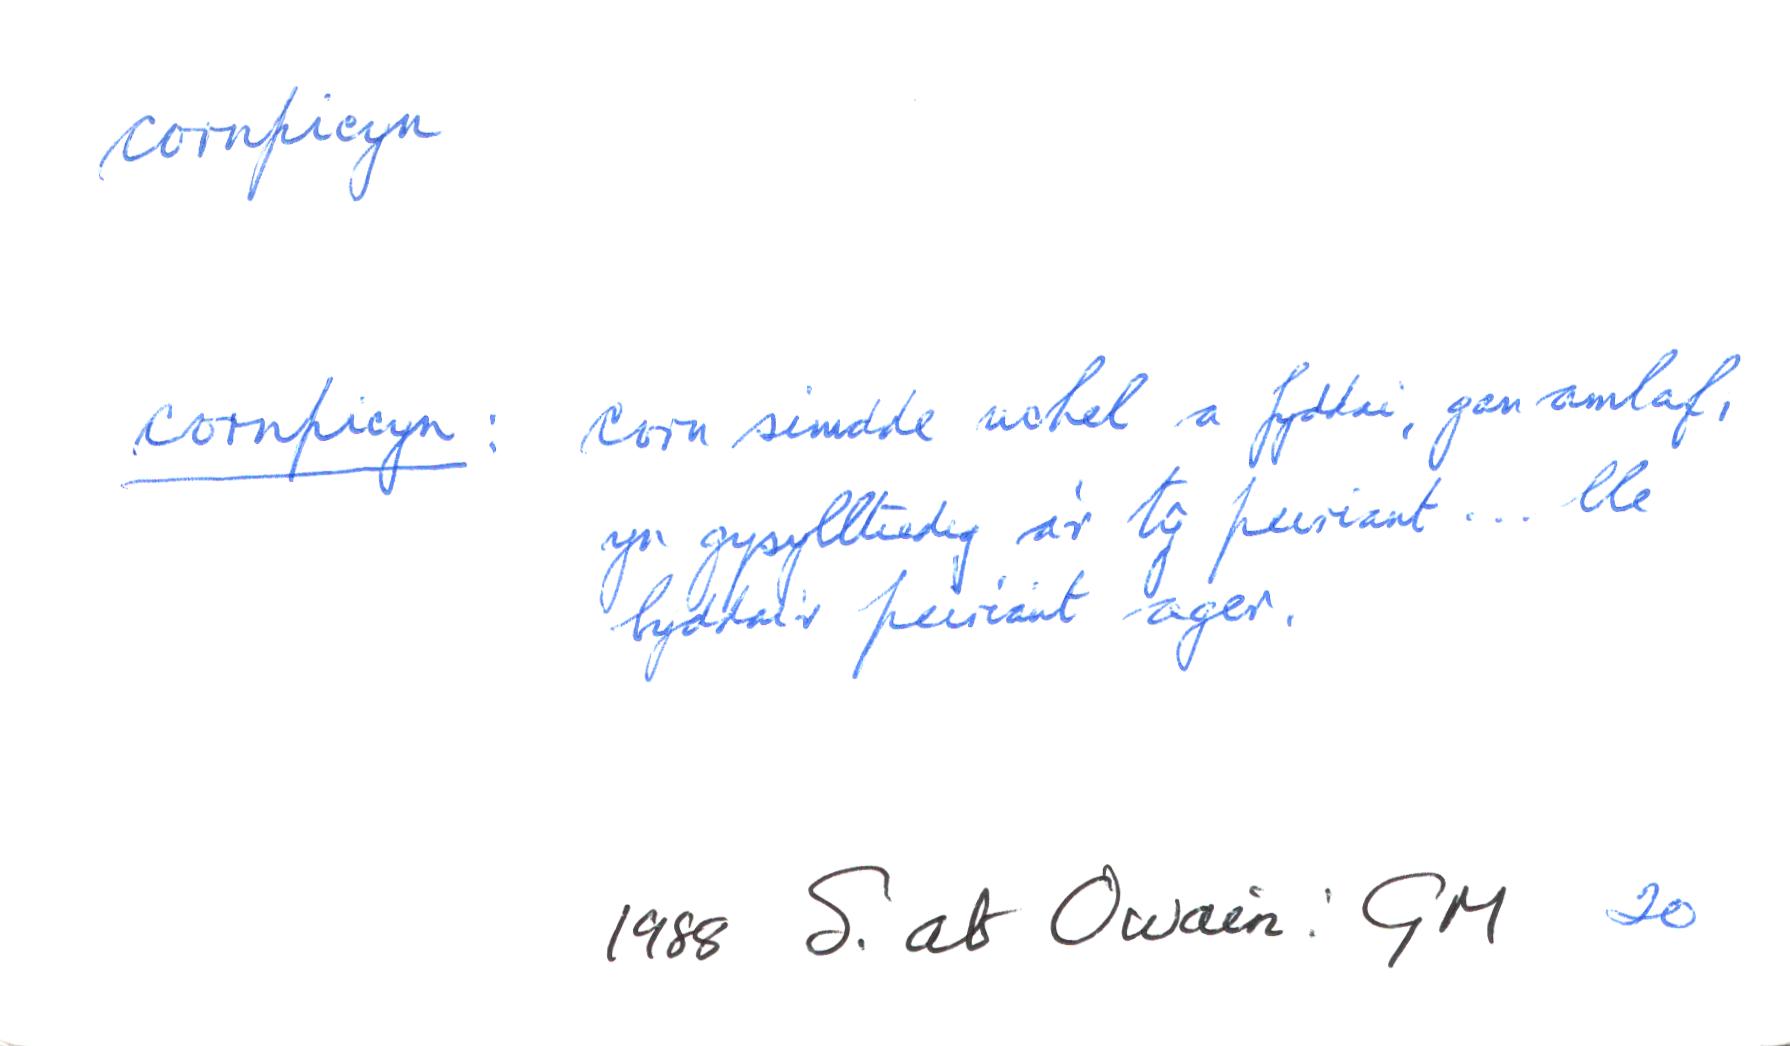 cornpicyn
cornpicyn : corn simdde uchel a fyddai, gan amlaf,
yn gysylltiedig â'r tŷ peiriant ... lle
byddai'r peiriant ager.
1988 S. ab Owain : GM 20